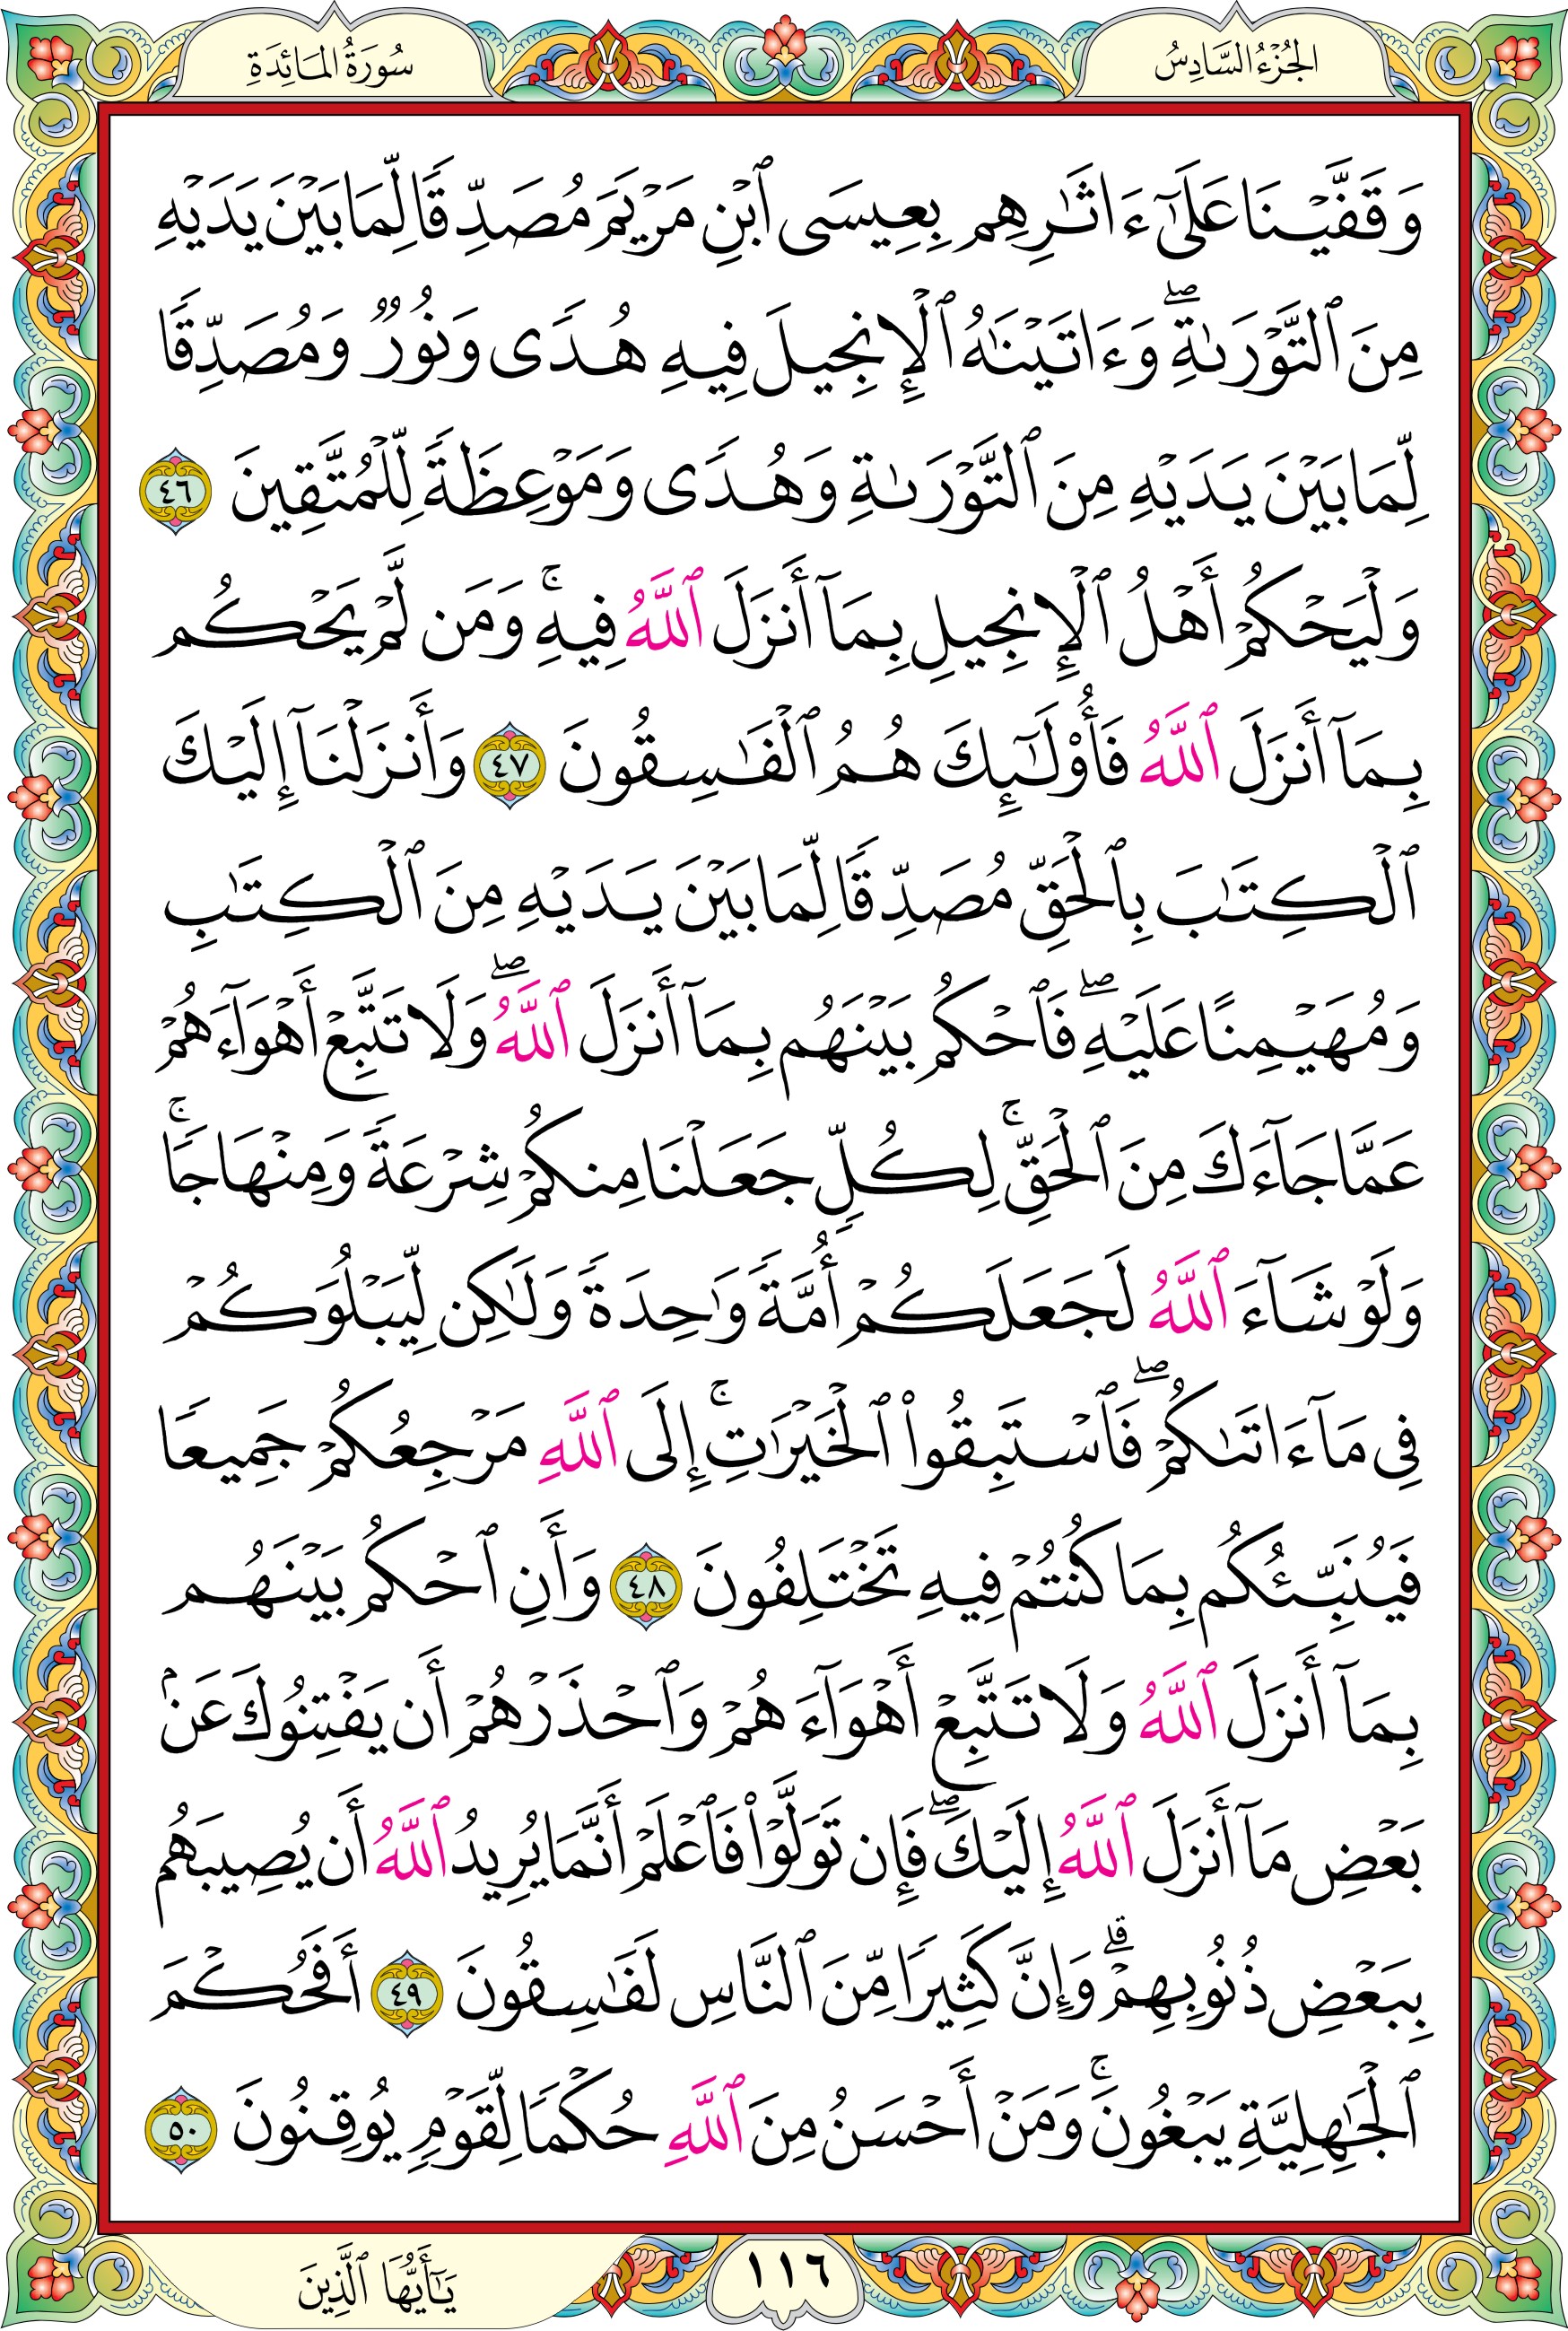 الجُزْءُ السَّادِسُ
سُورَةُ المَائِدَةِ
وَقَفَّيْنَا عَلَىٰٓ ءَاثَٰرِهِم بِعِيسَى ٱبْنِ مَرْيَمَ مُصَدِّقًا لِّمَا بَيْنَ يَدَيْهِ
مِنَ ٱلتَّوْرَىٰةِ ۖ وَءَاتَيْنَٰهُ ٱلْإِنجِيلَ فِيهِ هُدًى وَنُورٌ وَمُصَدِّقًا
لِّمَا بَيْنَ يَدَيْهِ مِنَ ٱلتَّوْرَىٰةِ وَهُدًى وَمَوْعِظَةً لِّلْمُتَّقِينَ ٤٦
وَلْيَحْكُمْ أَهْلُ ٱلْإِنجِيلِ بِمَآ أَنزَلَ ٱللَّهُ فِيهِ ۚ وَمَن لَّمْ يَحْكُم
بِمَآ أَنزَلَ ٱللَّهُ فَأُو۟لَٰٓئِكَ هُمُ ٱلْفَٰسِقُونَ ٤٧ وَأَنزَلْنَآ إِلَيْكَ
ٱلْكِتَٰبَ بِٱلْحَقِّ مُصَدِّقًا لِّمَا بَيْنَ يَدَيْهِ مِنَ ٱلْكِتَٰبِ
وَمُهَيْمِنًا عَلَيْهِ ۖ فَٱحْكُم بَيْنَهُم بِمَآ أَنزَلَ ٱللَّهُ ۖ وَلَا تَتَّبِعْ أَهْوَآءَهُمْ
عَمَّا جَآءَكَ مِنَ ٱلْحَقِّ ۚ لِكُلٍّ جَعَلْنَا مِنكُمْ شِرْعَةً وَمِنْهَاجًا ۚ
وَلَوْ شَآءَ ٱللَّهُ لَجَعَلَكُمْ أُمَّةً وَٰحِدَةً وَلَٰكِن لِّيَبْلُوَكُمْ
فِى مَآ ءَاتَىٰكُمْ ۖ فَٱسْتَبِقُوا۟ ٱلْخَيْرَٰتِ ۚ إِلَى ٱللَّهِ مَرْجِعُكُمْ جَمِيعًا
فَيُنَبِّئُكُم بِمَا كُنتُمْ فِيهِ تَخْتَلِفُونَ ٤٨ وَأَنِ ٱحْكُم بَيْنَهُم
بِمَآ أَنزَلَ ٱللَّهُ وَلَا تَتَّبِعْ أَهْوَآءَهُمْ وَٱحْذَرْهُمْ أَن يَفْتِنُوكَ عَنۢ
بَعْضِ مَآ أَنزَلَ ٱللَّهُ إِلَيْكَ ۖ فَإِن تَوَلَّوْا۟ فَٱعْلَمْ أَنَّمَا يُرِيدُ ٱللَّهُ أَن يُصِيبَهُم
بِبَعْضِ ذُنُوبِهِمْ ۗ وَإِنَّ كَثِيرًا مِّنَ ٱلنَّاسِ لَفَٰسِقُونَ ٤٩ أَفَحُكْمَ
ٱلْجَٰهِلِيَّةِ يَبْغُونَ ۚ وَمَنْ أَحْسَنُ مِنَ ٱللَّهِ حُكْمًا لِّقَوْمٍ يُوقِنُونَ ٥٠
١١٦
يَٰٓأَيُّهَا ٱلَّذِينَ